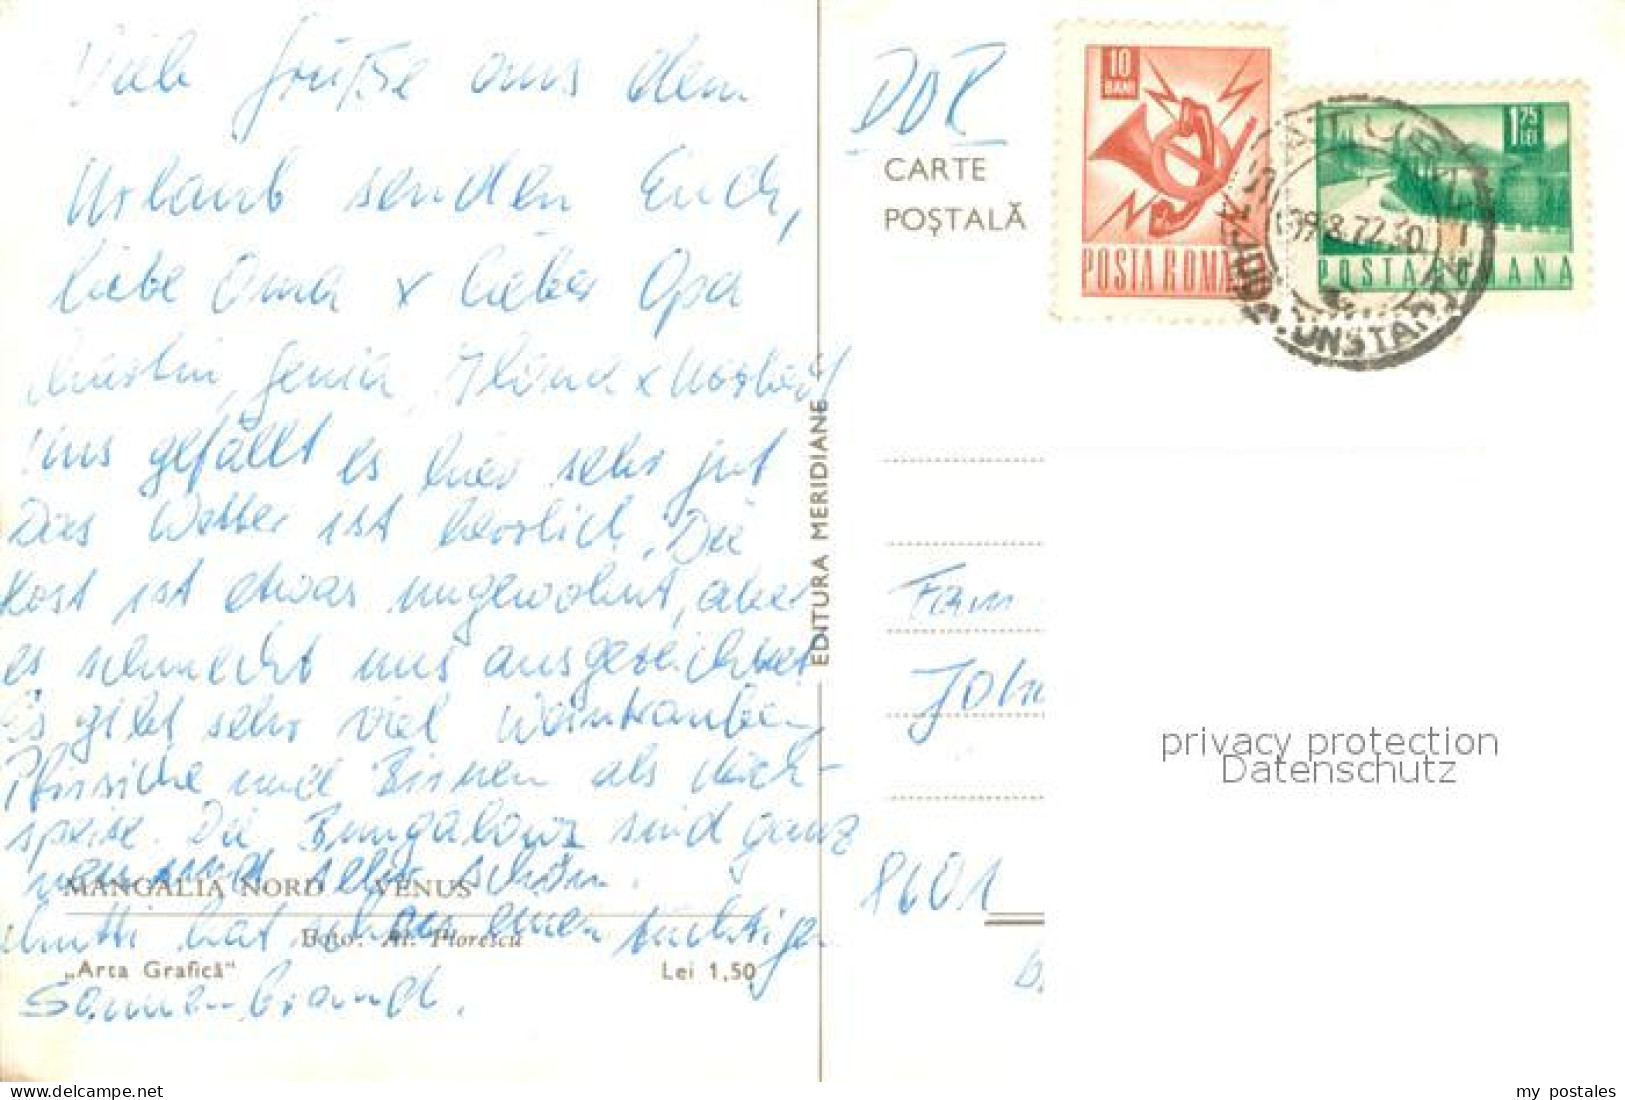 Viele Grüße aus dem
Urlaub senden Euch,
liebe Oma & lieber Opa
Uns gefällt es hier sehr gut
Das Wetter ist herrlich. Die
Kost ist etwas ungewohnt, aber
es schmeckt uns ausgezeichnet
Es gibt sehr viel Weintrauben,
Pfirsiche und Birnen als Nach-
speise. Die Bungalows sind ganz
neu und sehr schön.
Mutti hat schon einen tüchtigen
Sonnenbrand.
MANGALIA NORD - VENUS
Foto: Al. Florescu
„Arta Grafică"
Lei 1,50
EDITURA MERIDIANE
DDR
CARTE
POȘTALĂ
10
BANI
POSTA ROMANA
1,75
LEI
POSTA ROMANA
CONSTANTA
Fam
John
8601
privacy protection
Datenschutz
my postales